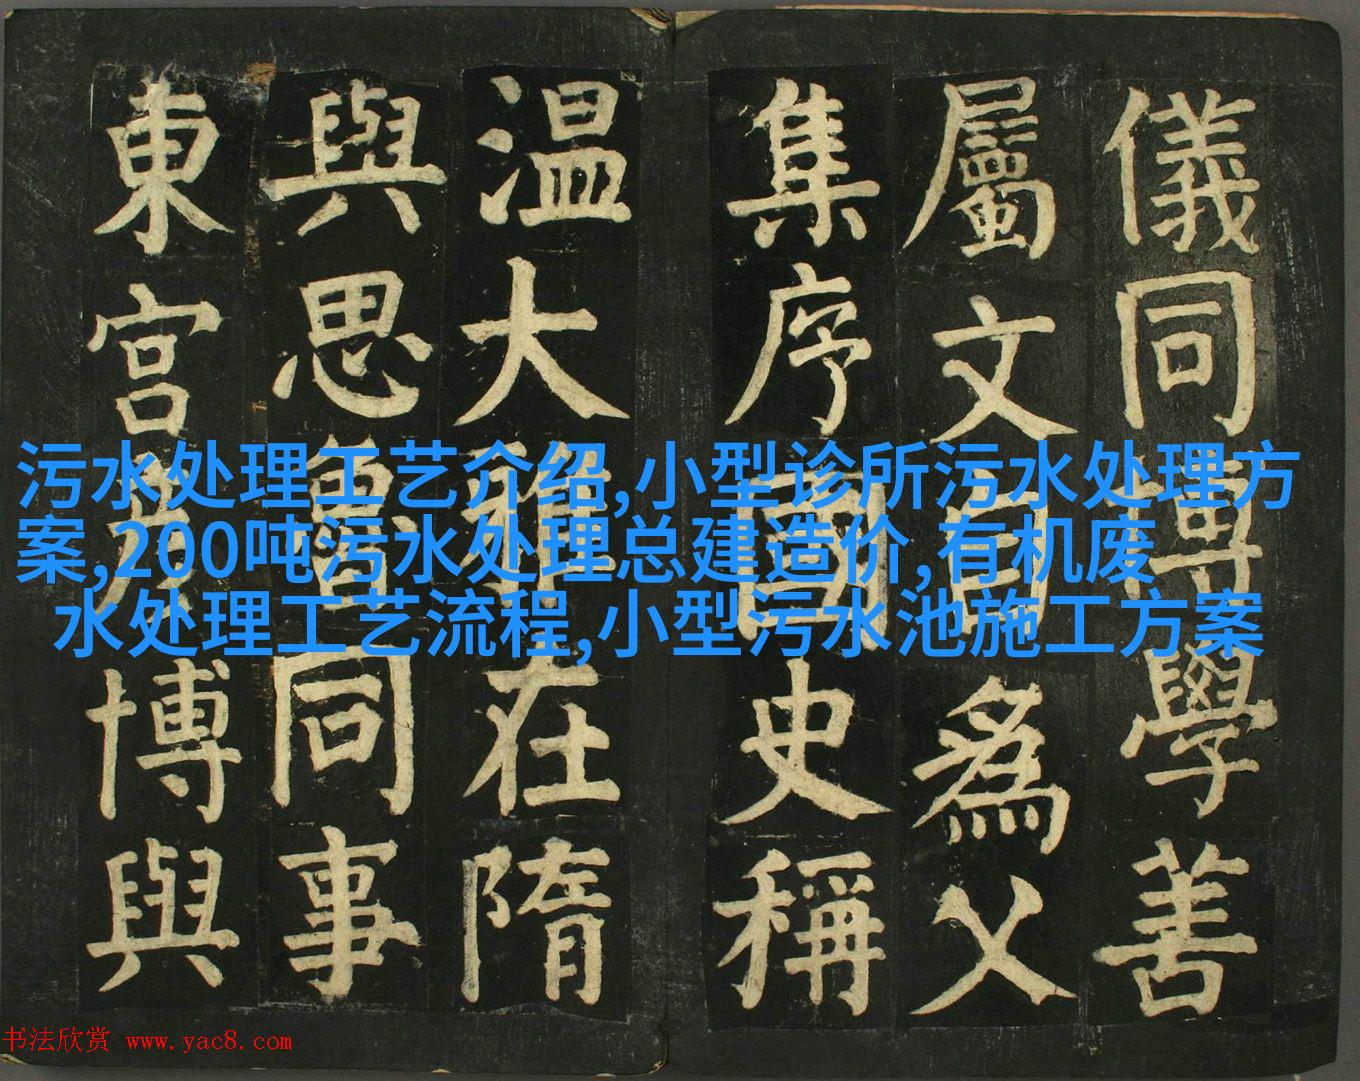 儀同博學善
屬文自為父
集序國史稱
温大雅在隋
與思魯同事
東宮彥博與
污水处理工艺介绍,小型诊所污水处理方
案,200吨污水处理总建造价,有机废
水处理工艺流程,小型污水池施工方案
书法欣赏 www.yac8.com